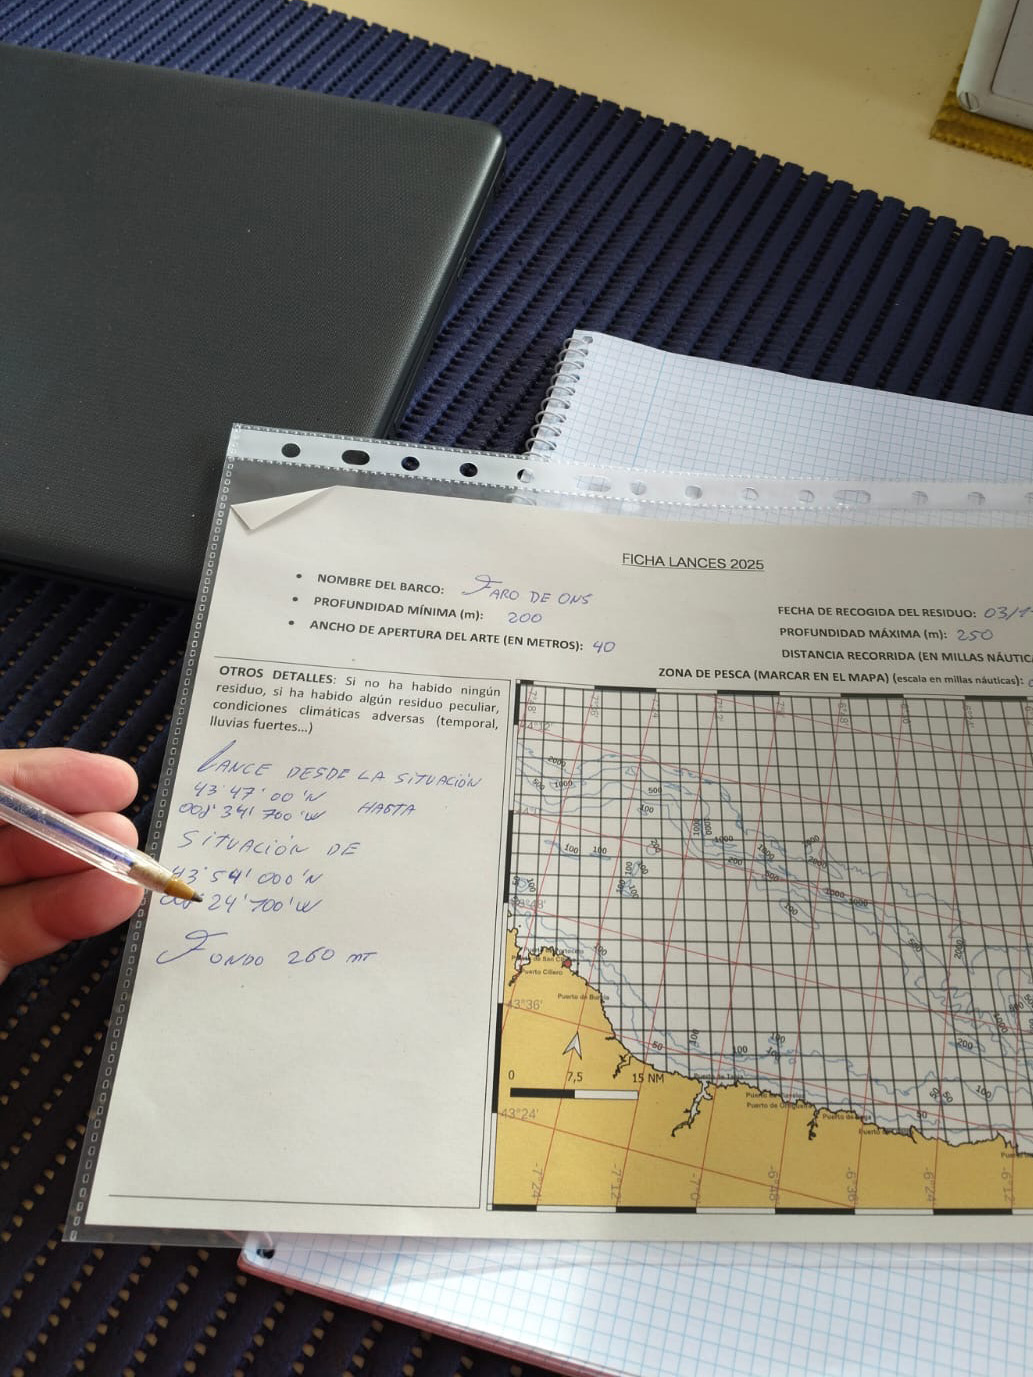 FICHA LANCES 2025
• NOMBRE DEL BARCO: FARO DE ONS
• PROFUNDIDAD MÍNIMA (m): 200
• ANCHO DE APERTURA DEL ARTE (EN METROS): 40
FECHA DE RECOGIDA DEL RESIDUO: 03/1
PROFUNDIDAD MÁXIMA (m): 250
DISTANCIA RECORRIDA (EN MILLAS NÁUTICA
ZONA DE PESCA (MARCAR EN EL MAPA) (escala en millas náuticas):
OTROS DETALLES: Si no ha habido ningún
residuo, si ha habido algún residuo peculiar,
condiciones climáticas adversas (temporal,
lluvias fuertes...)
LANCE DESDE LA SITUACIÓN
43'47'00'N
008'34'700'W HASTA
SITUACIÓN DE
43'54'000'N
24'700'W
FONDO 260 MT
2000
500
1000
500
100
1000
100
100
200
1000
2000
100
100
Puerto Cillero
Puerto de Burela
43°36'
0 7,5 15 NM
50
100
100
200
100
50
43°24'
-7°24'
-7°12'
-7°0'
-6°48'
-6°36'
-6°24'
-6°12'